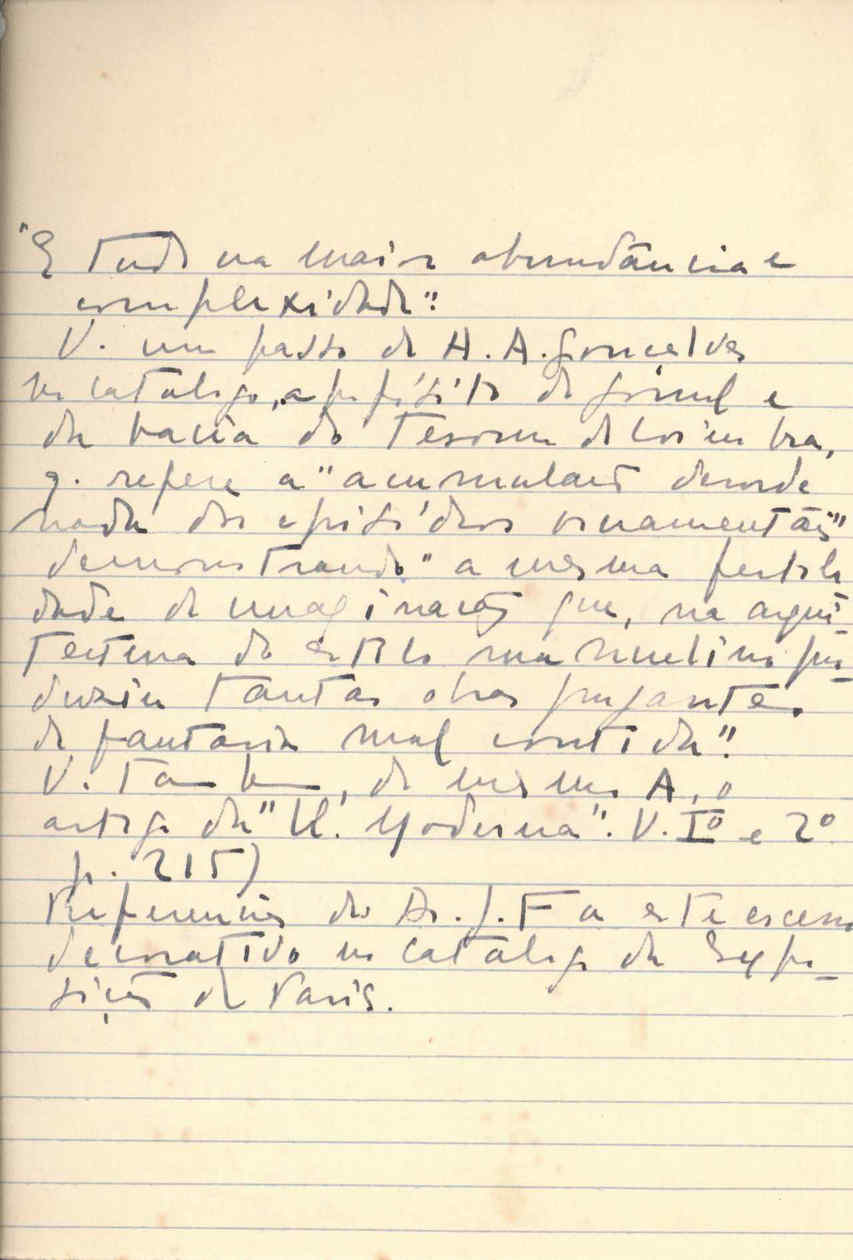 "E tudo na maior abundância e
complexidade".
V. um passo de A. A. Gonçalves
no catálogo, a propósito do gomil e
da bacia do Tesouro de Coimbra,
q. refere a "acumulação desorde
nada dos episódios ornamentais"
demonstrando "a mesma fertili
dade de imaginação que, na arqui
tectura do estilo manuelino pro_
duziu tantas obras pujantes
de fantasia mal contida".
V. também, do mesmo A, o
artigo da "Moderna". V. Iº e 2º
p. 215)
Referências do Dr. J. F a este excesso
decorativo no catálogo da Expo_
sição de Paris.